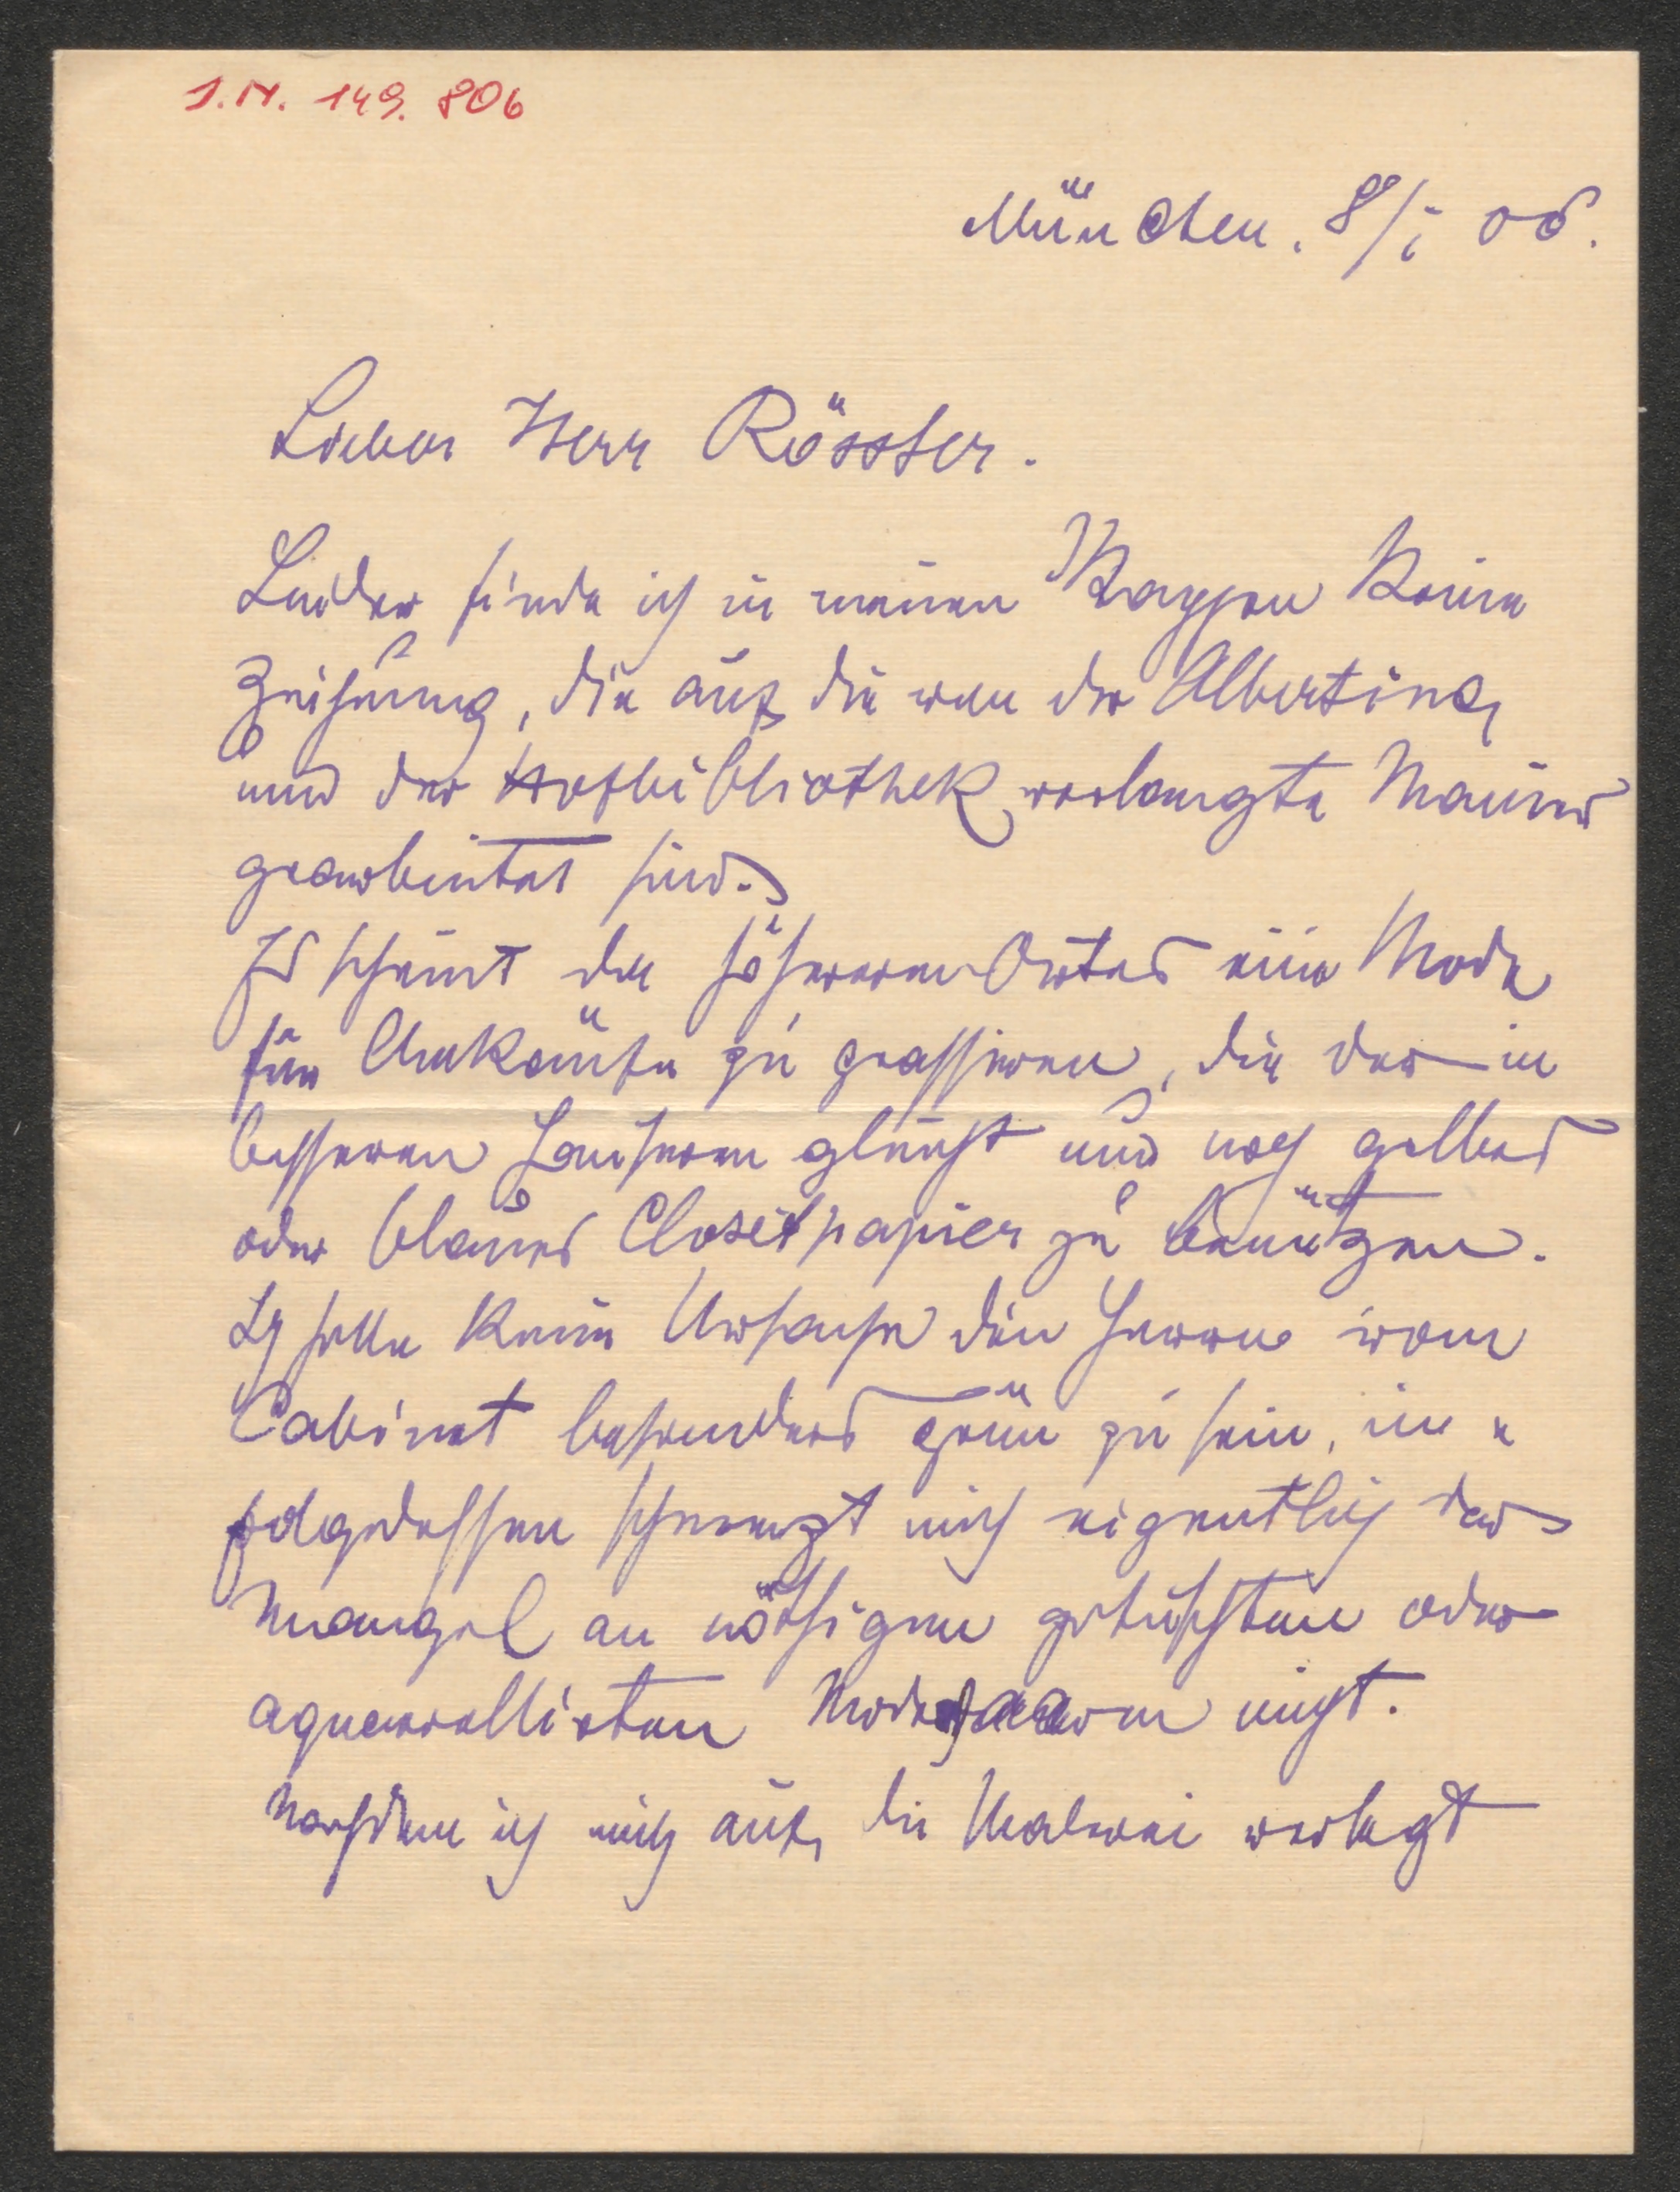 I.N. 149.806
München. 8/I 06.
Lieber Herr Rössler.
Leider finde ich in meinen Mappen keine
Zeichnung, die auf die von der Albertina
und der Hofbibliothek verlangte Manier
gearbeitet sind.
Es scheint da höheren Ortes eine Mode
für Ankäufe zu grassieren, die der in
besseren Häusern gleicht nur noch gelbes
oder blaues Closetpapier zu benützen.
Ich habe keine Ursache den Herren vom
Cabinet besonders grün zu sein, in-
folgedessen schmerzt mich eigentlich der
Mangel an nöthigen getuschten oder
aquarellierten nicht.
Nachdem ich mich auf die Malerei verlegt